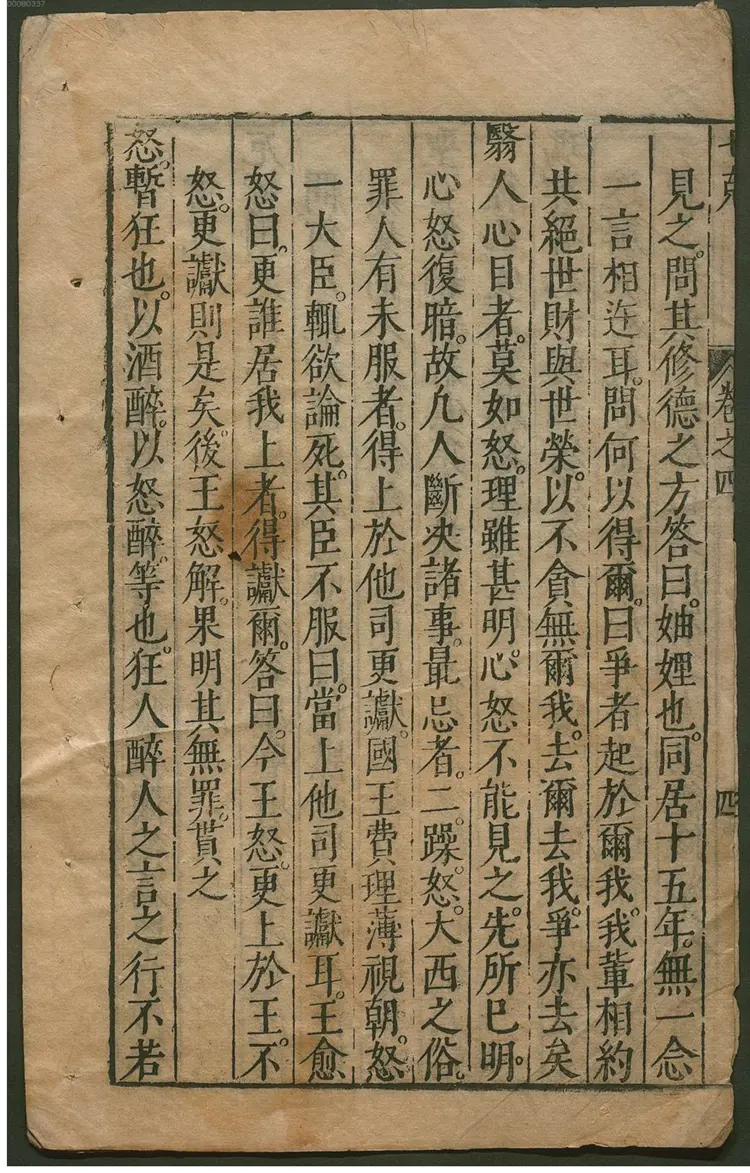 00080337
七克 卷之四 四
見之。問其修德之方。答曰。妯娌也。同居十五年。無一念
一言相迕耳。問何以得爾。曰。爭者起於爾我。我輩相約
共絕世財與世榮。以不貪無爾我。去爾去我。爭亦去矣
翳人心目者。莫如怒。理雖甚明。心怒不能見之。先所已明。
心怒復暗。故凡人斷決諸事。最忌者。二躁怒。大西之俗。
罪人有未服者。得上於他司更讞。國王費理薄視朝。怒
一大臣。輒欲論死。其臣不服曰。當上他司更讞耳。王愈
怒曰。更誰居我上者。得讞爾。答曰。今王怒。更上於王不
怒。更讞則是矣。後王怒解。果明其無罪。貰之
怒。暫狂也。以酒醉。以怒醉。等也。狂人醉人之言之行不若